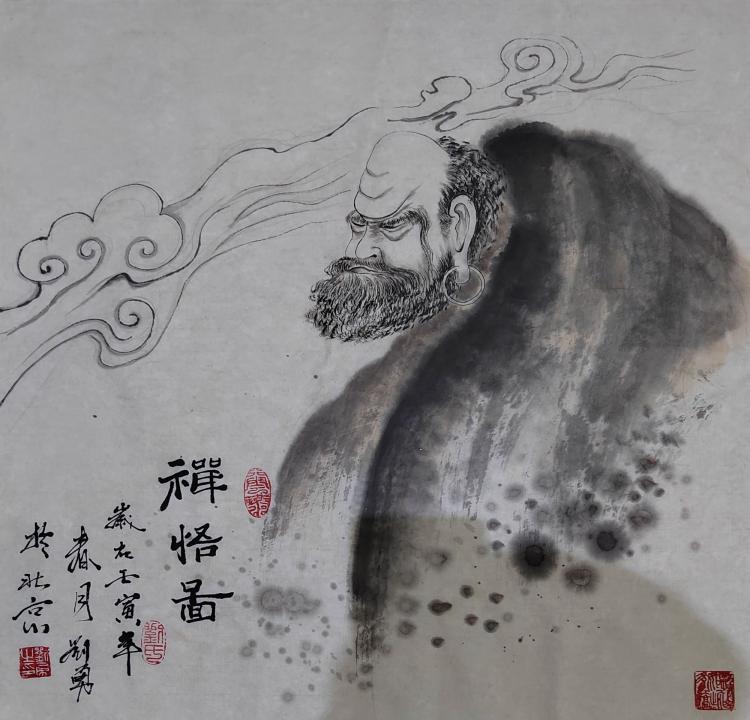 禪悟圖
歲在壬寅年
春月劉勇
於北京
劉氏